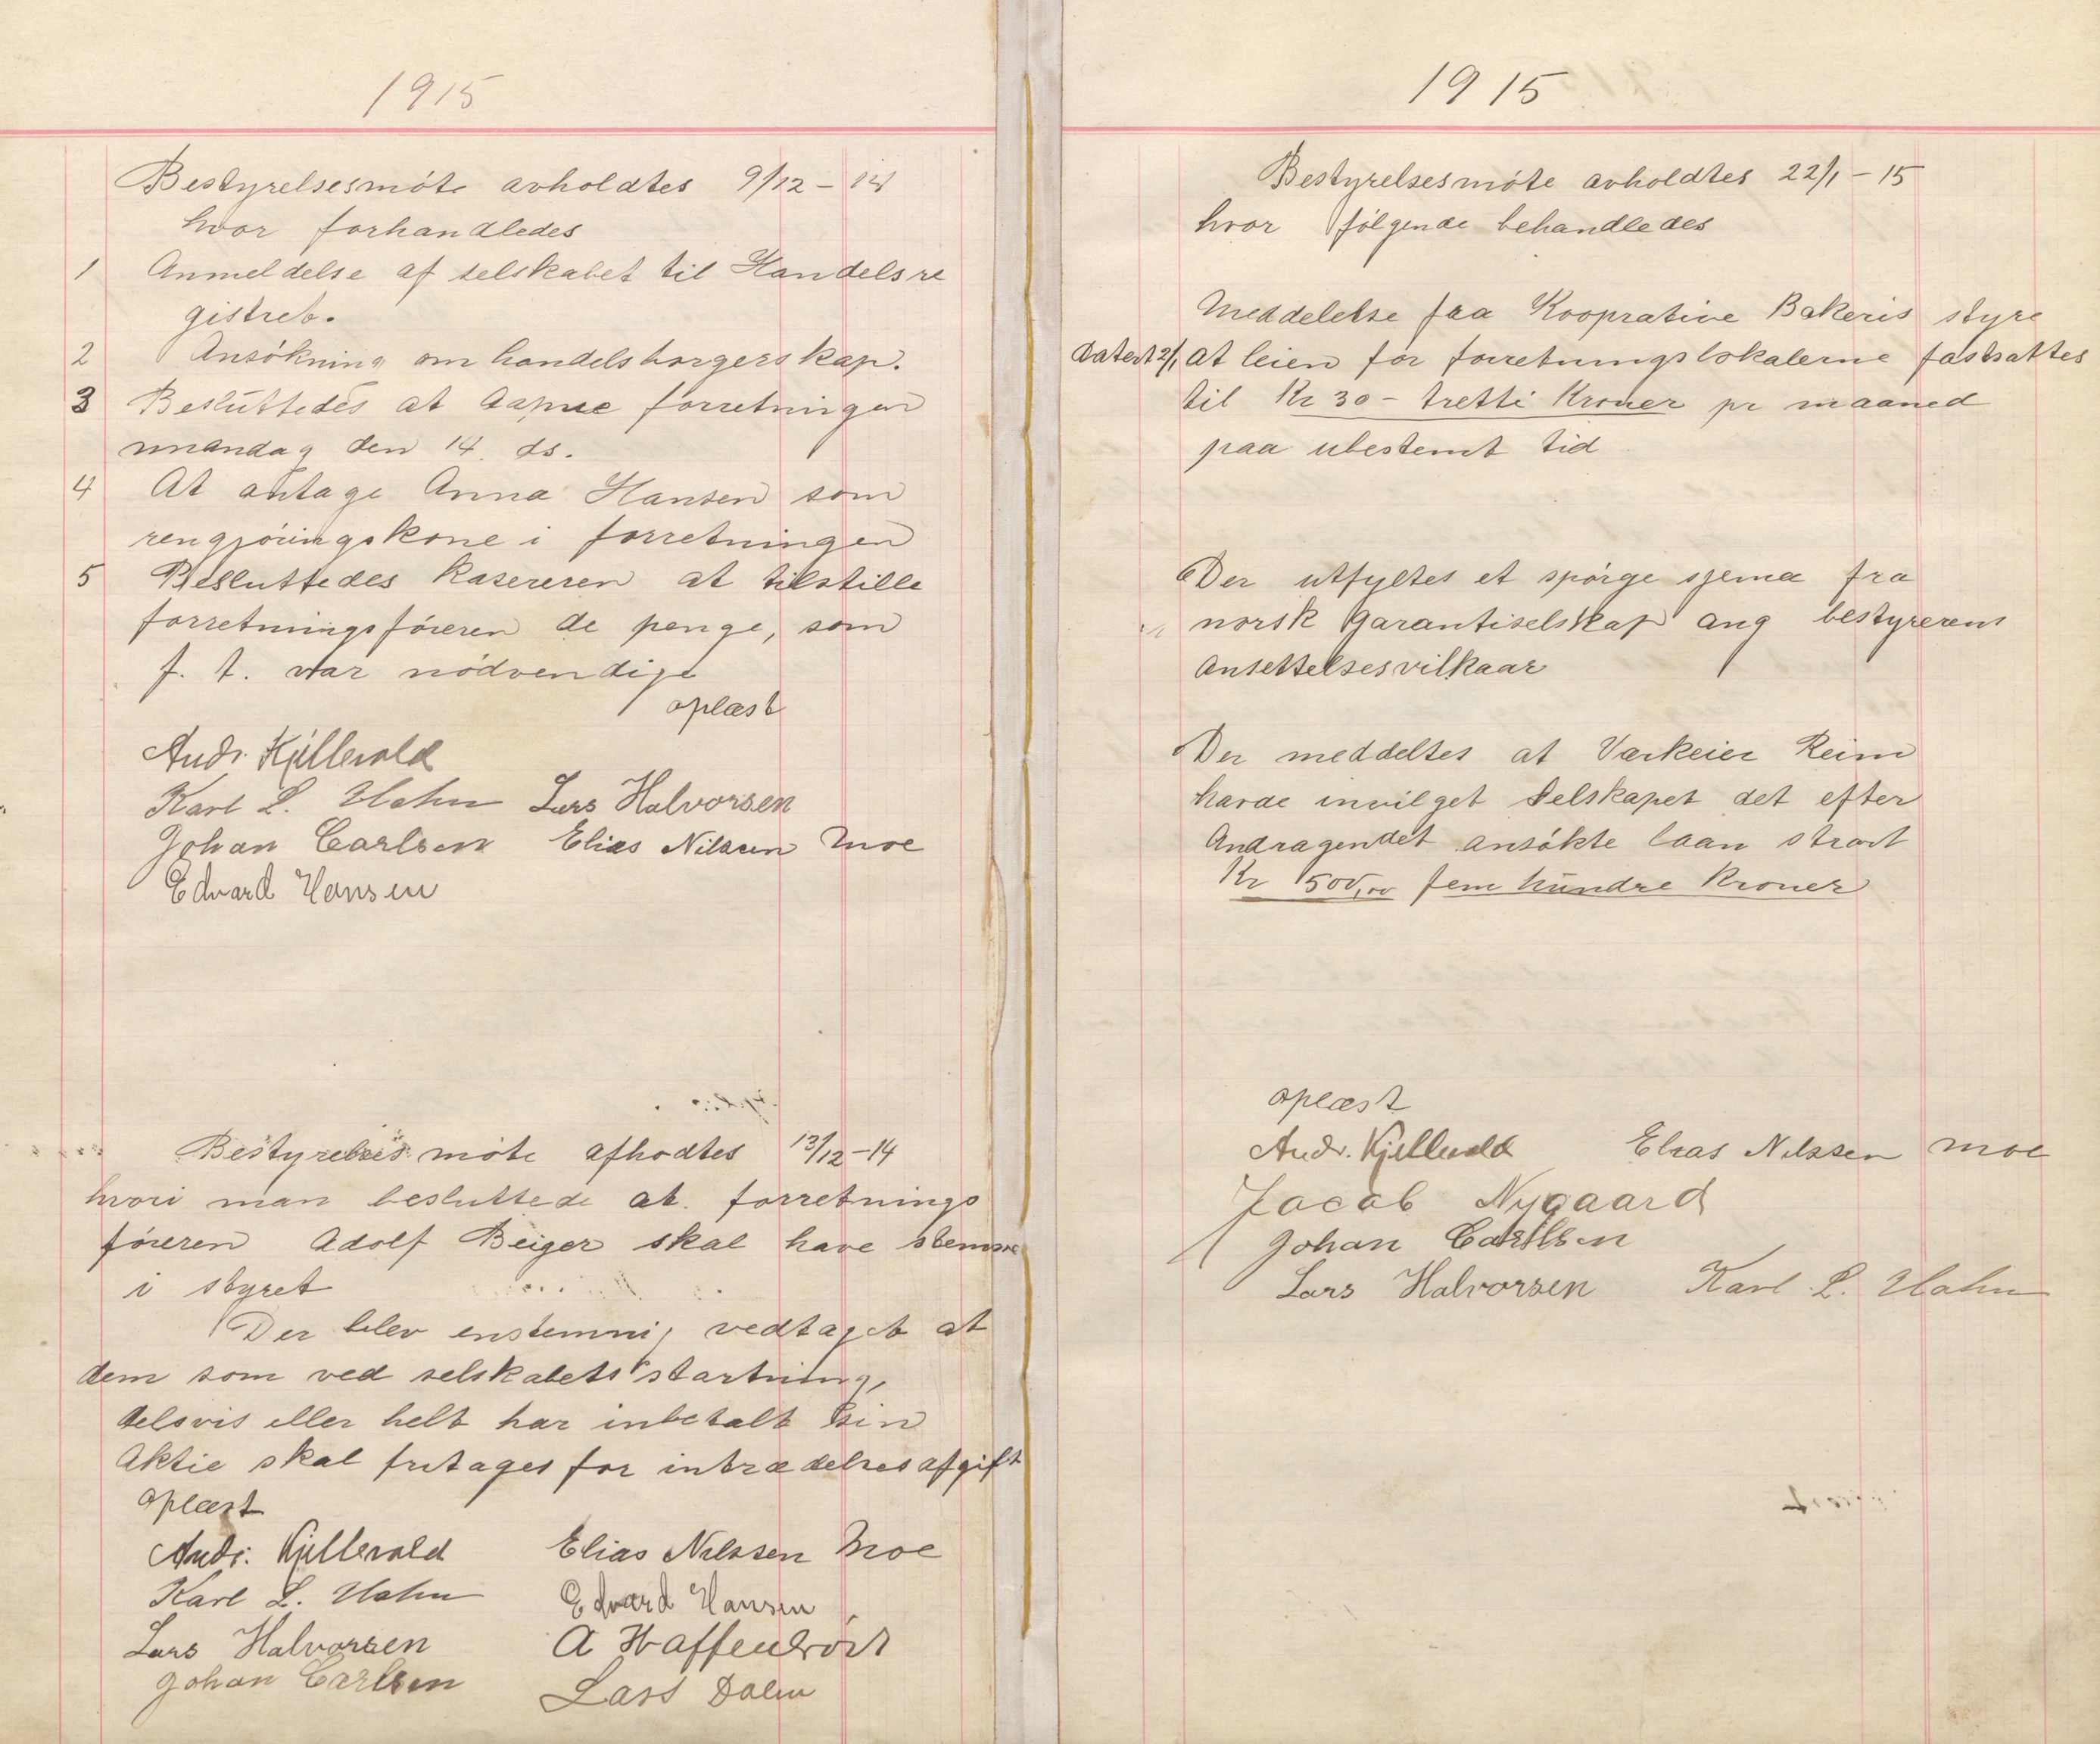 1915
Bestyrelsesmöte avholdtes 9/12 - 14
hvor forhandledes
1 Anmeldelse af selskabet til Handelsre
gistret.
2 Ansökning om handelsborgerskap.
3 Besluttedes at aapne forretningen
mandag den 14. ds.
4 At antage Anna Hansen som
rengjöringskone i forretningen
5 Besluttedes kasereren at tilstille
forretningsföreren de penge, som
f. t. var nödvendige
oplæst
Andr. Kjellevold
Karl L. Hahn Lars Halvorsen
Johan Carlsen Elias Nilssen Moe
Edvard Hansen
Bestyrelsesmöte afhodtes 13/12-14
hvori man besluttede at forretnings
föreren Adolf Beiger skal have stemme
i styret
Der blev enstemmig vedtaget at
dem som ved selskabets startning,
delsvis eller helt har inbetalt sin
Aktie skal fritages for intrædelses afgift
oplæst
Andr. Kjellevold Elias Nilssen Moe
Karl L. Hahn Edvard Hansen
Lars Halvorsen A
Johan Carlsen Lars Dalen
1915
Bestyrelsesmöte avholdtes 22/1 - 15
hvor fölgende behandledes
Meddelelse fra Kooprative Bakeris styre
Datert 2/1 at leien for forretningslokalerne fastsattes
til Kr 30 - tretti Kroner pr maaned
paa ubestemt tid
Der utfyltes et spörge sjema fra
norsk garantiselskap ang bestyrerens
Ansettelsesvilkaar
Der meddeltes at Værkeier Reim
havde invilget Selskapet det efter
Andragendet ansökte laan stort
Kr 500,00 fem hundre Kroner
oplæst
Andr. Kjellevold Elias Nilssen Moe
Jacob Nygaard
Johan Carlsen
Lars Halvorsen Karl L. Hahn